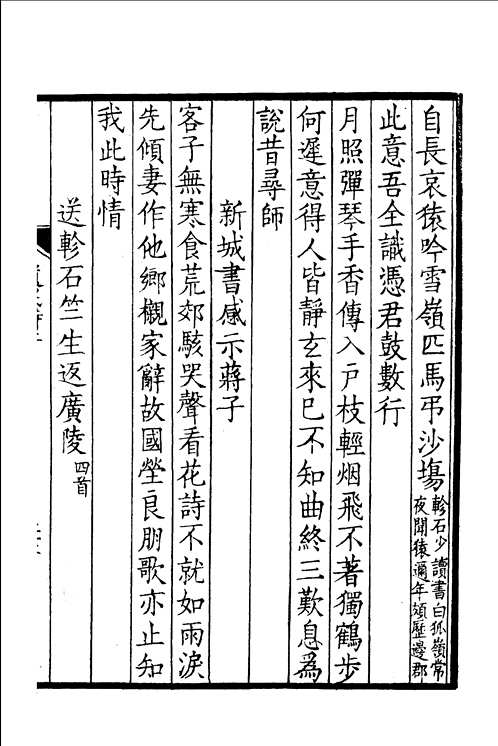 自長哀猿吟雪嶺匹馬弔沙塲軫石少讀書白狐嶺常
夜聞猿邇年頻歷邊郡
此意吾全識憑君鼓數行
月照彈琴手香傳入戸枝輕烟飛不著獨鶴步
何遲意得人皆靜玄來巳不知曲終三歎息爲
說昔尋師
新城書感示蔣子
客子無寒食荒郊駭哭聲看花詩不就如雨淚
先傾妻作他鄉櫬家辭故國塋良朋歌亦止知
我此時情
送軫石竺生返廣陵四首